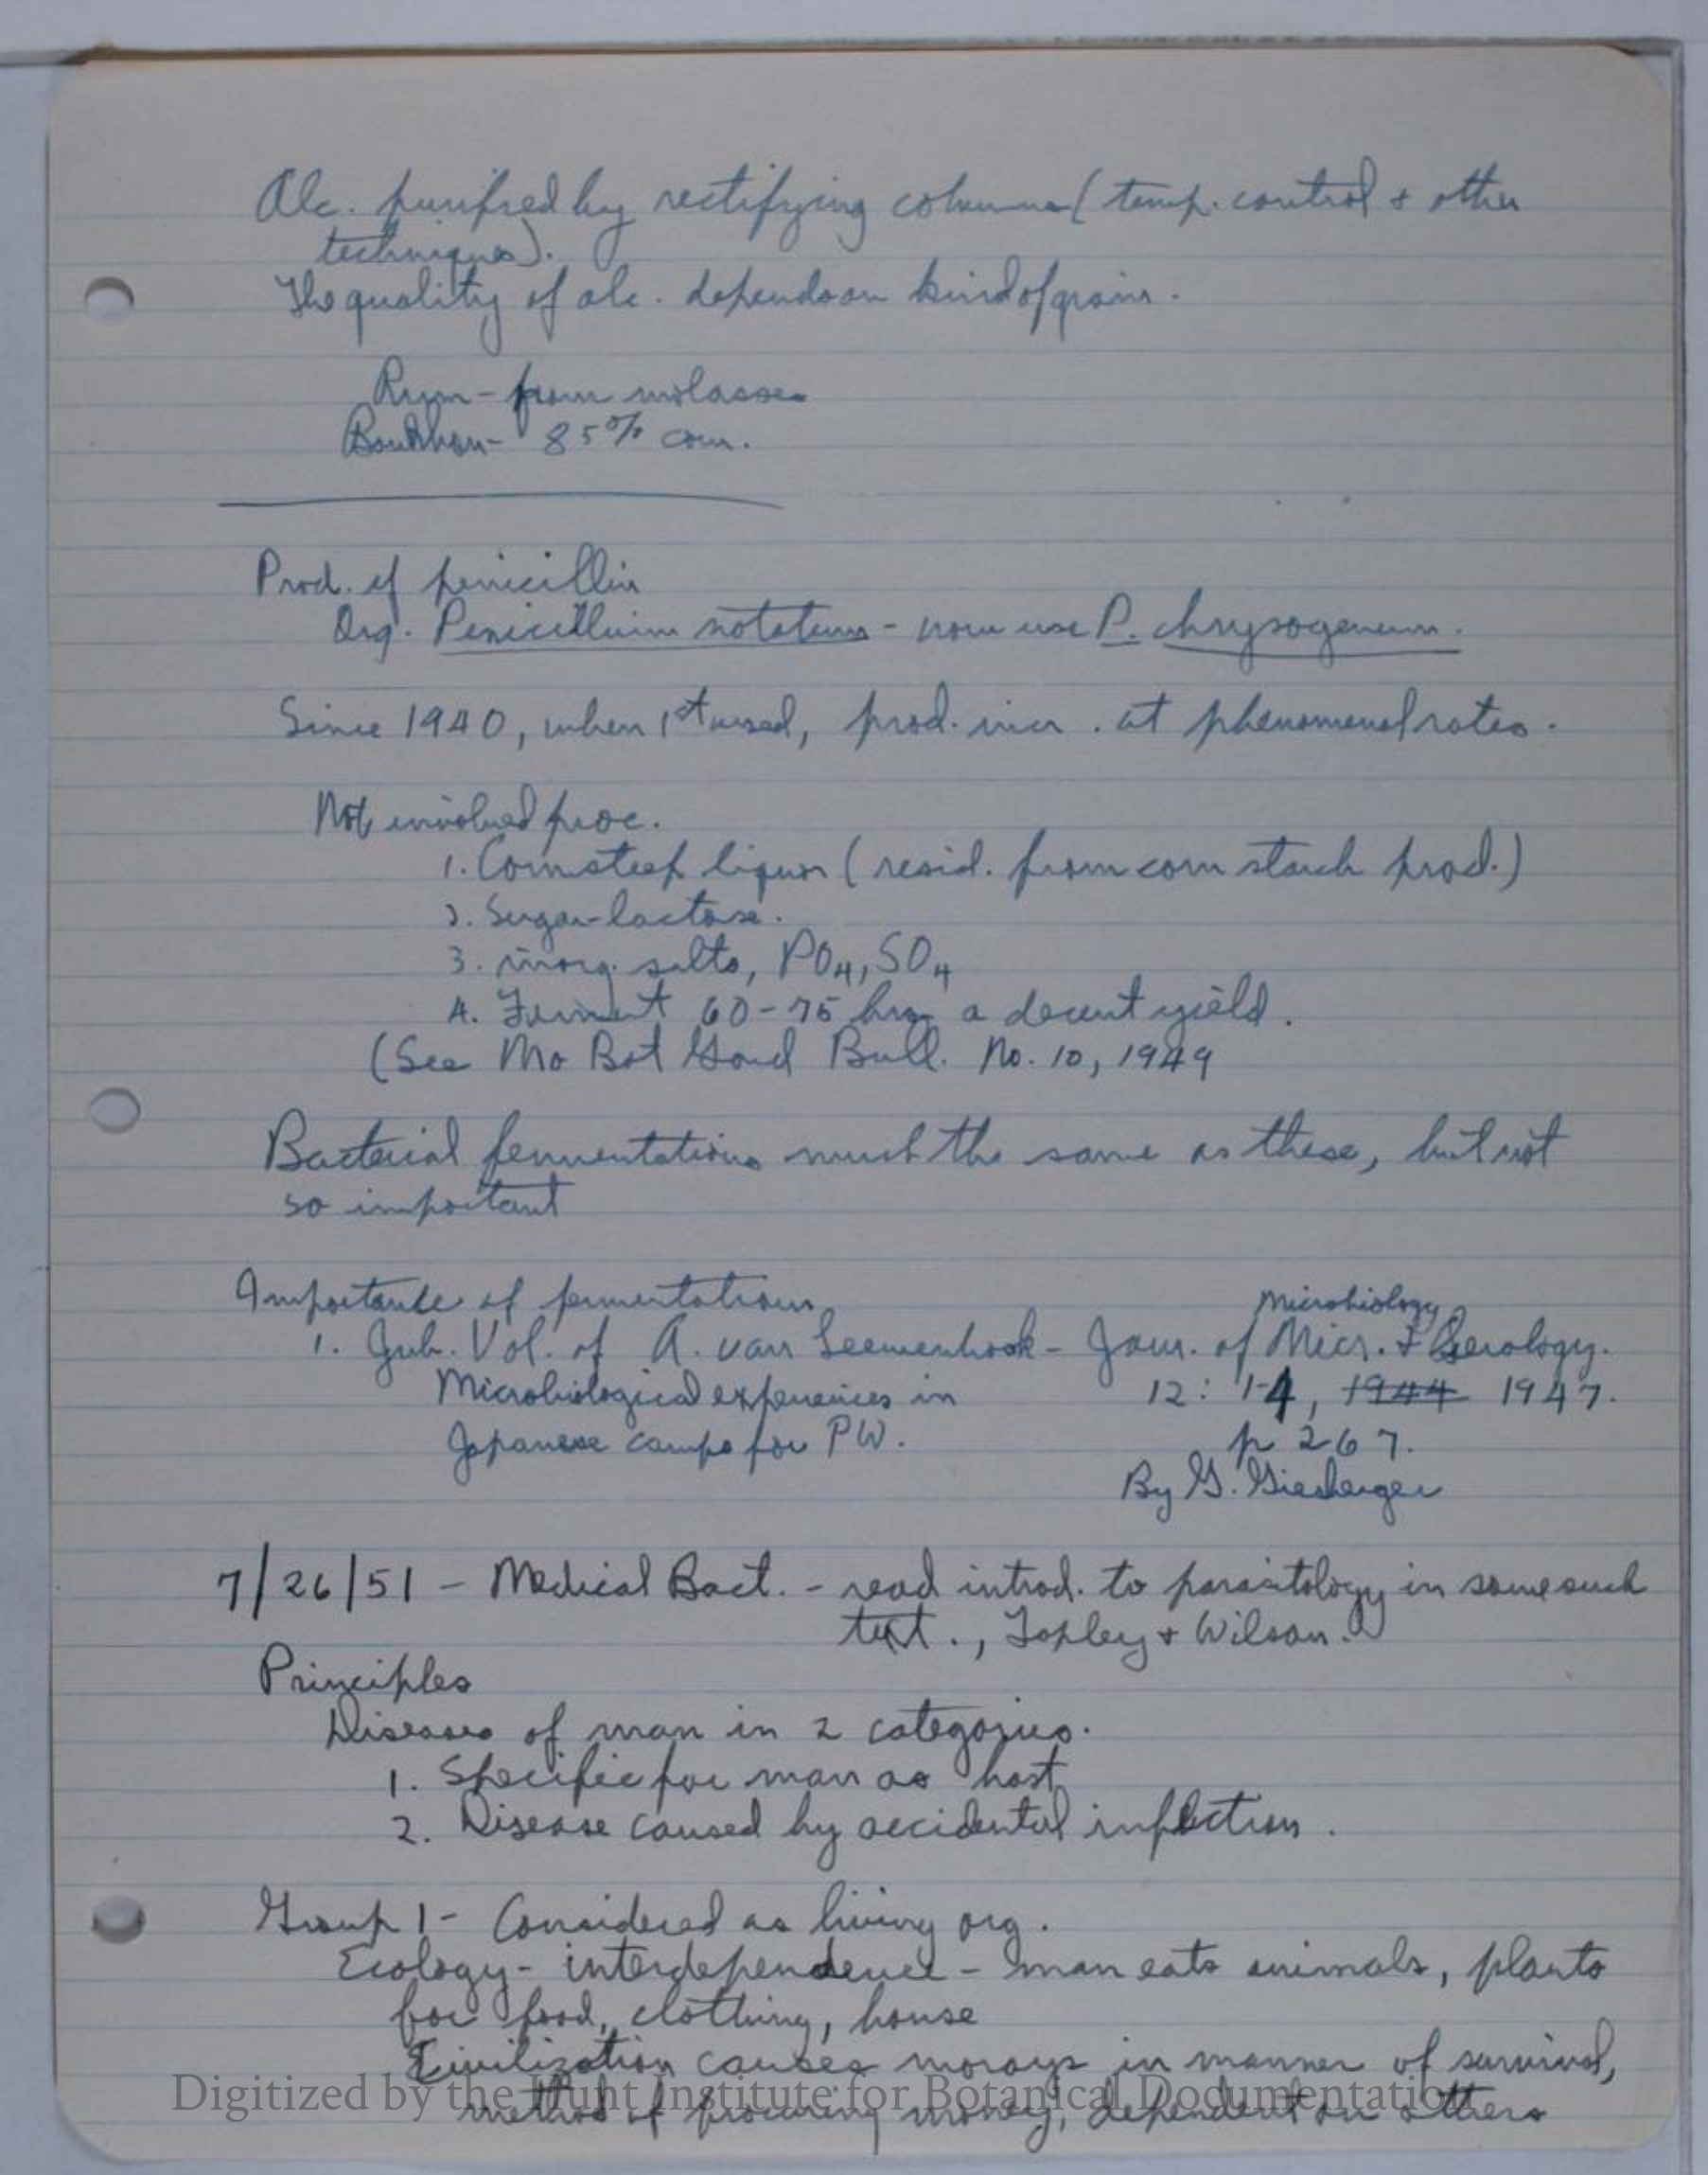 Alc. purified by rectifying columns (temp. control & other
techniques).
The quality of alc. depends on kind of grain.
Rum - from molasses
Bourbon - 85% corn.
Prod. of penicillin
Org. Penicillium notatum - now use P. chrysogenum.
Since 1940, when 1st used, prod. incr. at phenomenal rates.
Not involved proc.
1. Cornsteep liquor (resid. from corn starch prod.)
2. Sugar-lactose.
3. inorg. salts, PO4, SO4
4. Ferment 60-75 hrs a decent yield.
(See Mo Bot Gard Bull. No. 10, 1949
Bacterial fermentations much the same as these, but not
so important
Importance of fermentations
Microbiology
1. Jub. Vol. of A. van Leewenhook - Jour. of Micr. & Serology.
Microbiological experiences in 12: 1-4, 1944 1947.
Japanese camps for PW. p 267.
By G. Giesberger
7/26/51 - Medical Bact. - read introd. to parasitology in some such
text., Topley & Wilson.
Principles
Diseases of man in 2 categories.
1. Specific for man as host
2. Disease caused by accidental infection.
Group 1 - Considered as living org.
Ecology - interdependence - man eats animals, plants
for food, clothing, house
Civilization causes in manner of survival,
method of procuring money, dependent on others
Digitized by the Hunt Institute for Botanical Documentation